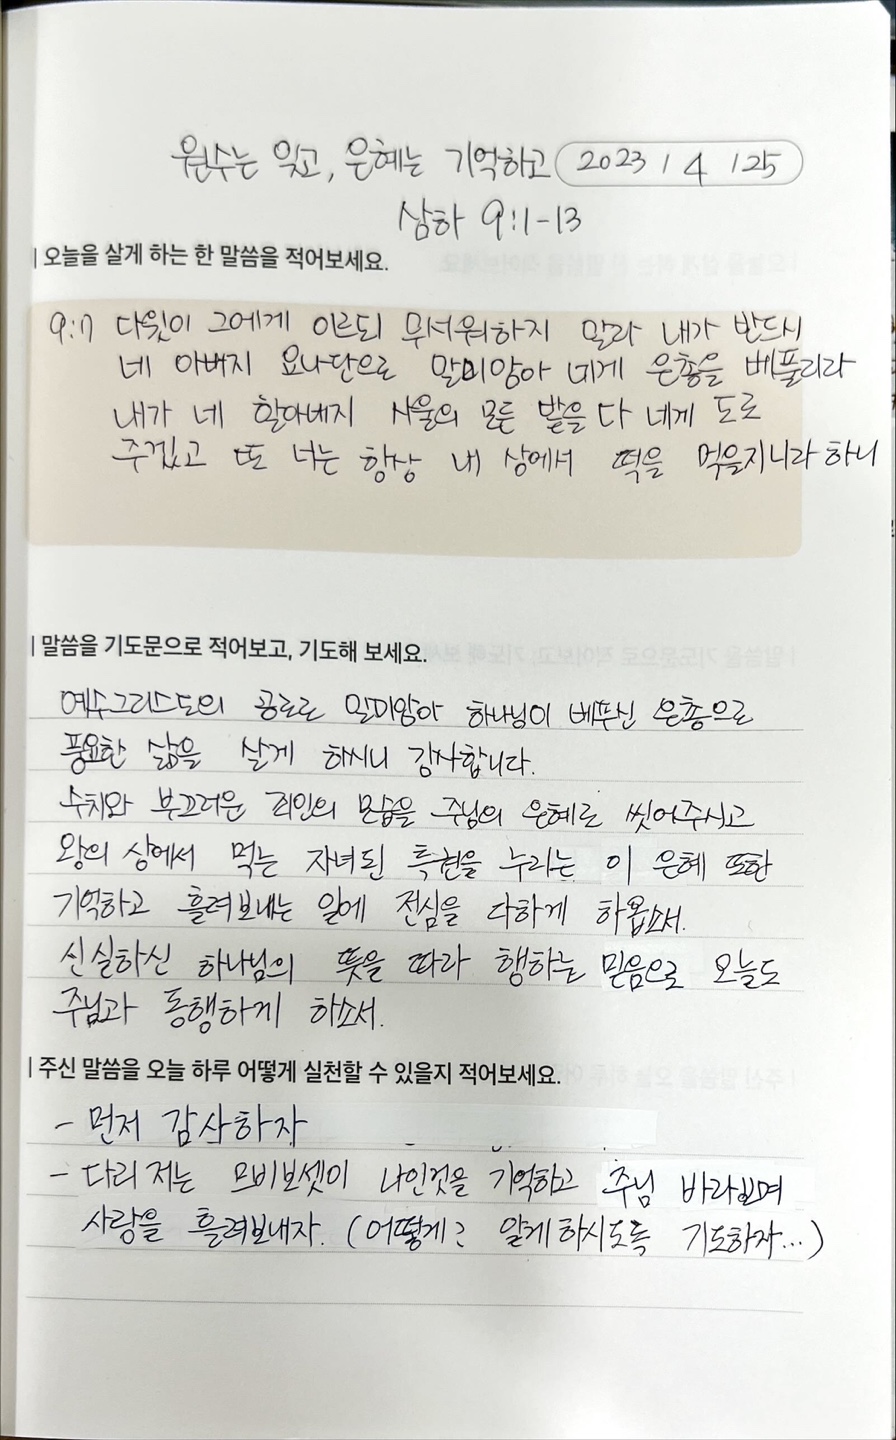 원수는 잊고, 은혜는 기억하고 2023 / 4 / 25
삼하 9:1-13
| 오늘을 살게 하는 한 말씀을 적어보세요.
9:7 다윗이 그에게 이르되 무서워하지 말라 내가 반드시
네 아버지 요나단으로 말미암아 네게 은총을 베풀리라
내가 네 할아버지 사울의 모든 밭을 다 네게 도로
주겠고 또 너는 항상 내 상에서 떡을 먹을지니라 하니
| 말씀을 기도문으로 적어보고, 기도해 보세요.
예수그리스도의 공로로 말미암아 하나님이 베푸신 은총으로
풍요한 삶을 살게 하시니 감사합니다.
수치와 부끄러운 죄인의 모습을 주님의 은혜로 씻어주시고
왕의 상에서 먹는 자녀된 특권을 누리는 이 은혜 또한
기억하고 흘려보내는 일에 전심을 다하게 하옵소서.
신실하신 하나님의 뜻을 따라 행하는 믿음으로 오늘도
주님과 동행하게 하소서.
| 주신 말씀을 오늘 하루 어떻게 실천할 수 있을지 적어보세요.
- 먼저 감사하자
- 다리 저는 므비보셋이 나인것을 기억하고 주님 바라보며
사랑을 흘려보내자. (어떻게? 알게하시도록 기도하자...)